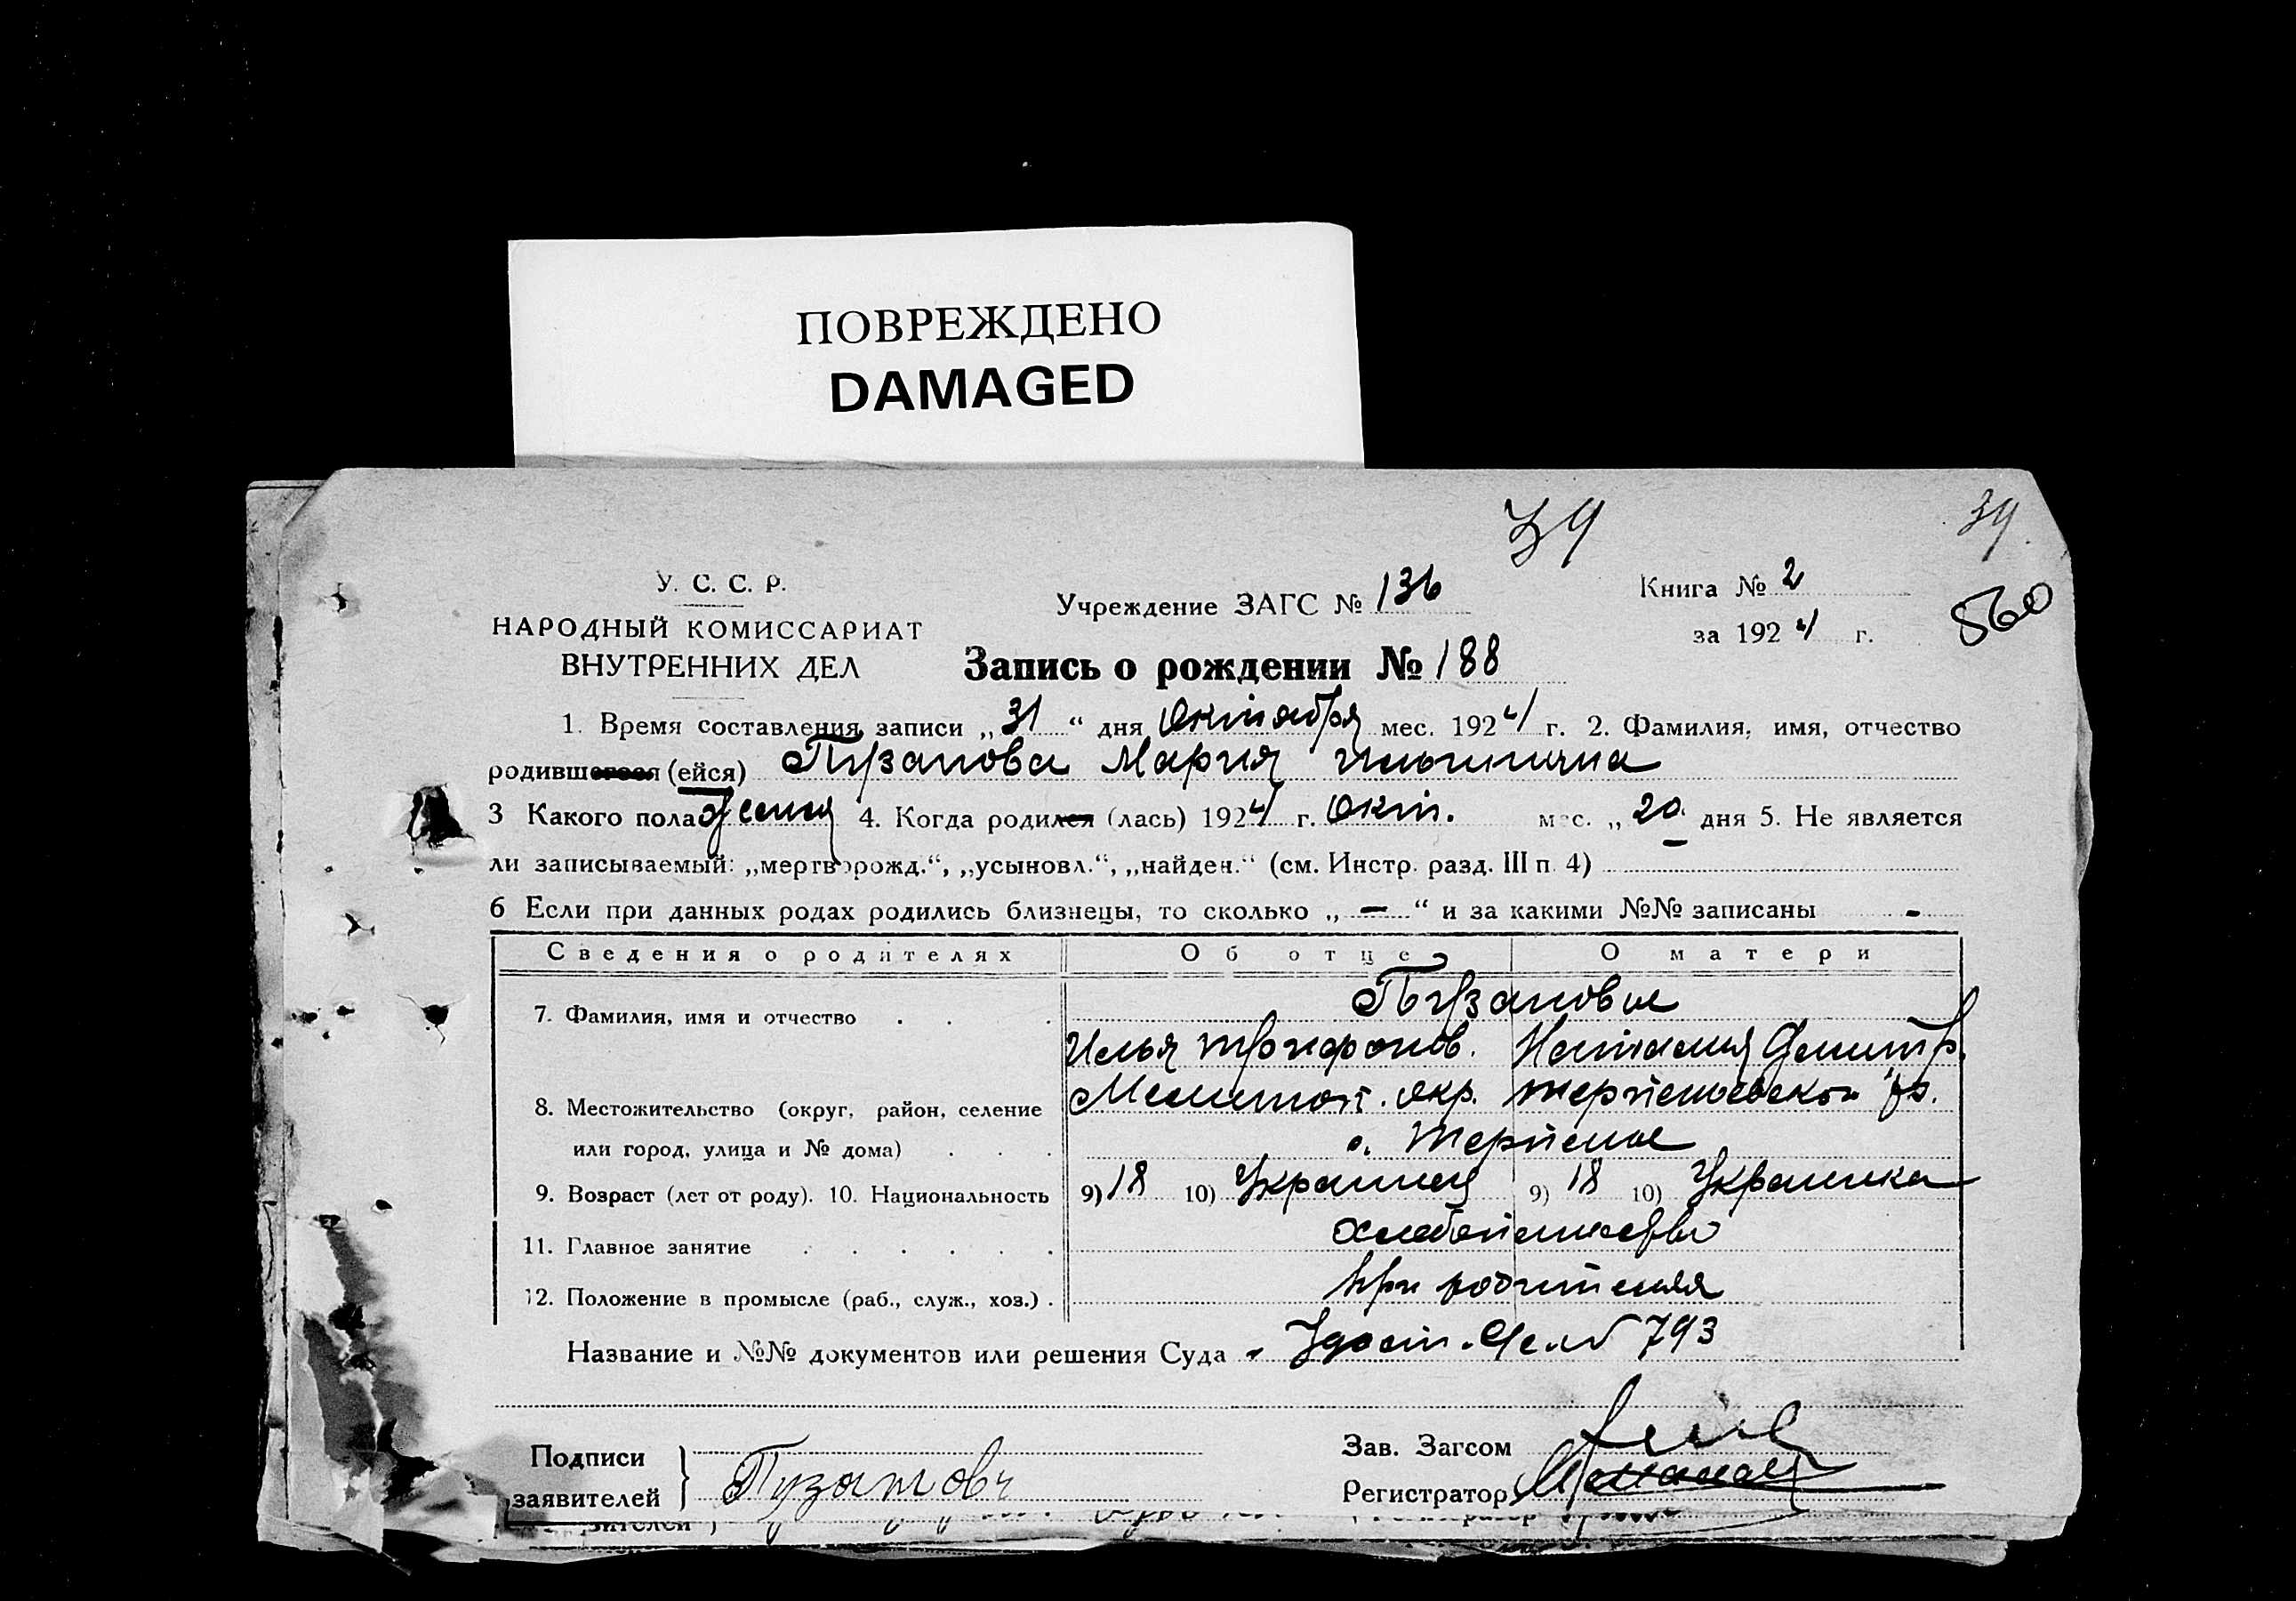 ПОВРЕЖДЕНО
DAMAGED
34
34.
560
У. С. С. Р.
НАРОДНЫЙ КОМИССАРИАТ
ВНУТРЕННИХ ДЕЛ
Учреждение ЗАГС № 136
Книга № 2
за 1924 г.
Запись о рождении № 188
1. Время составления записи „31“ дня Октября мес. 1924 г. 2. Фамилия, имя, отчество
родившегося (ейся) Пузанова Мария Ильинична
3 Какого пола женск 4. Когда родился (лась) 1924 г. Окт. мес. „20 дня 5. Не является
ли записываемый: „мертворожд.“, „усыновл.“, „найден.“ (см. Инстр. разд. III п. 4) —
6 Если при данных родах родились близнецы, то сколько „ — “ и за какими №№ записаны -
Сведения о родителях Об отце О матери
7. Фамилия, имя и отчество . . . Пузановы
Илья Прокофов. Наталия Дмитр.
8. Местожительство (округ, район, селение Мелитоп. окр. Терпеньевском р.
или город, улица и № дома) . . . с. Терпенье
9. Возраст (лет от роду). 10. Национальность 9) 18 10) Украинец 9) 18 10) Украинка
11. Главное занятие . . . . . . хлебопашество
12. Положение в промысле (раб., служ., хоз.) . при родителях
Название и №№ документов или решения Суда - Удост. 793
Подписи
заявителей } Пузанов
Зав. Загсом
Регистратор